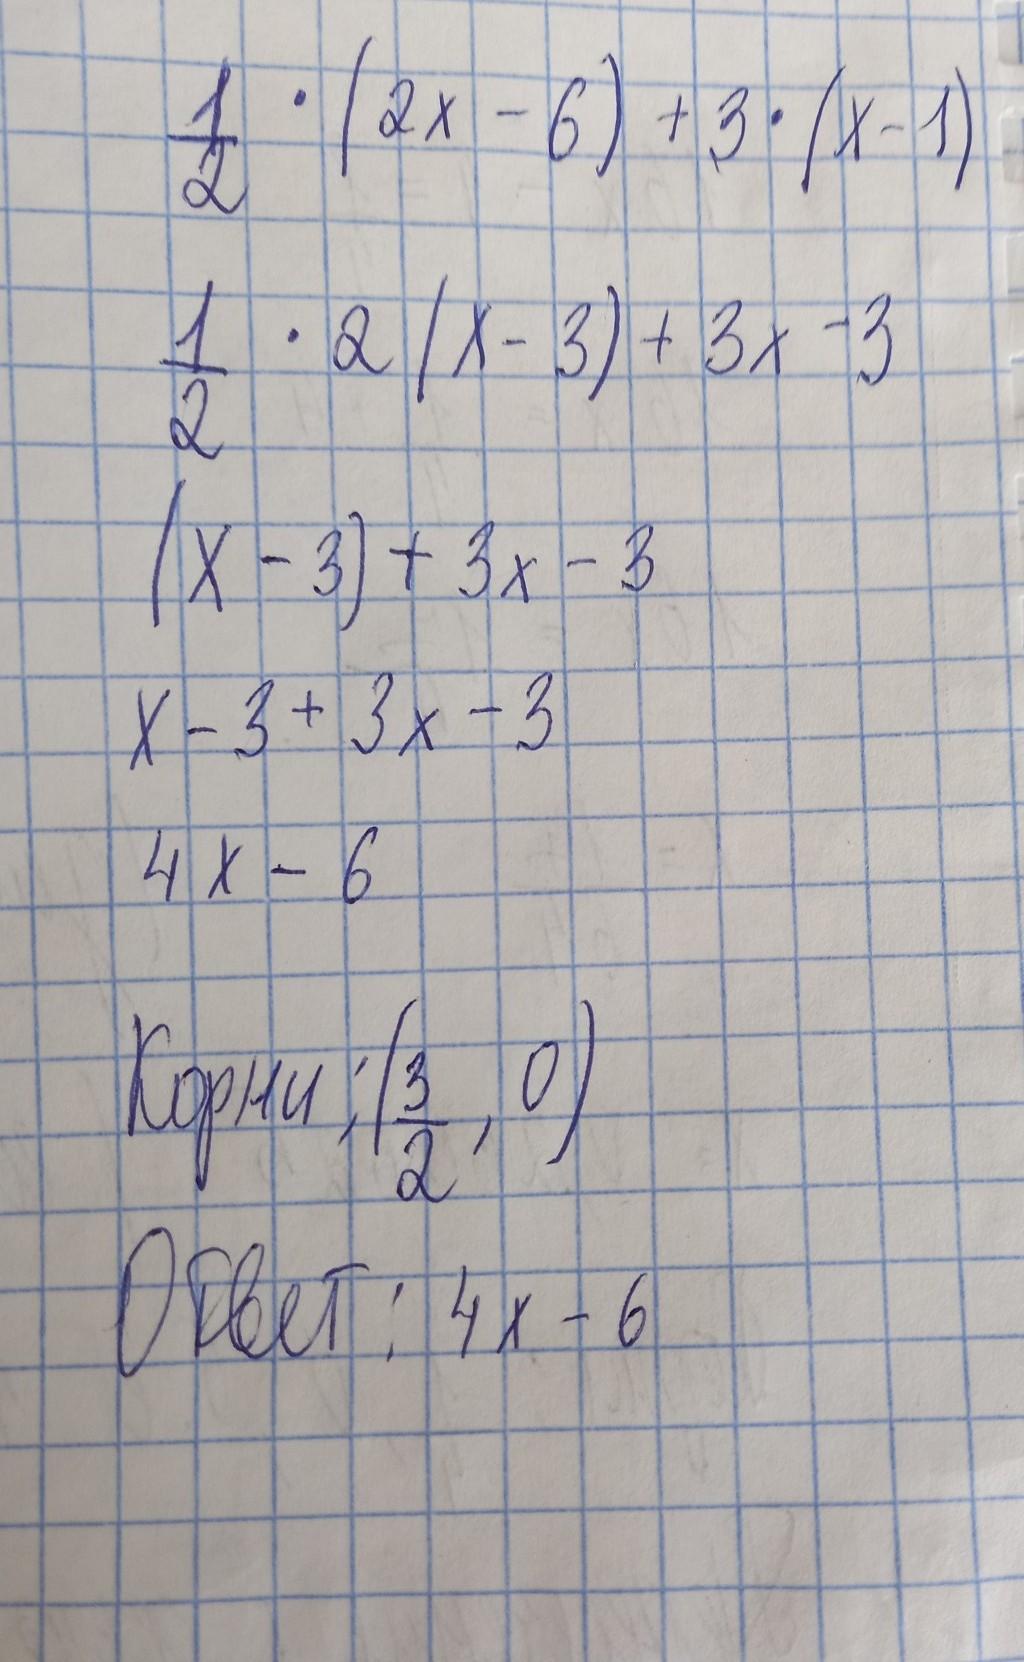 1/2 · (2x - 6) + 3 · (x - 1)
1/2 · 2 (x - 3) + 3x - 3
(x - 3) + 3x - 3
x - 3 + 3x - 3
4x - 6
Корни: (3/2, 0)
Ответ: 4x - 6